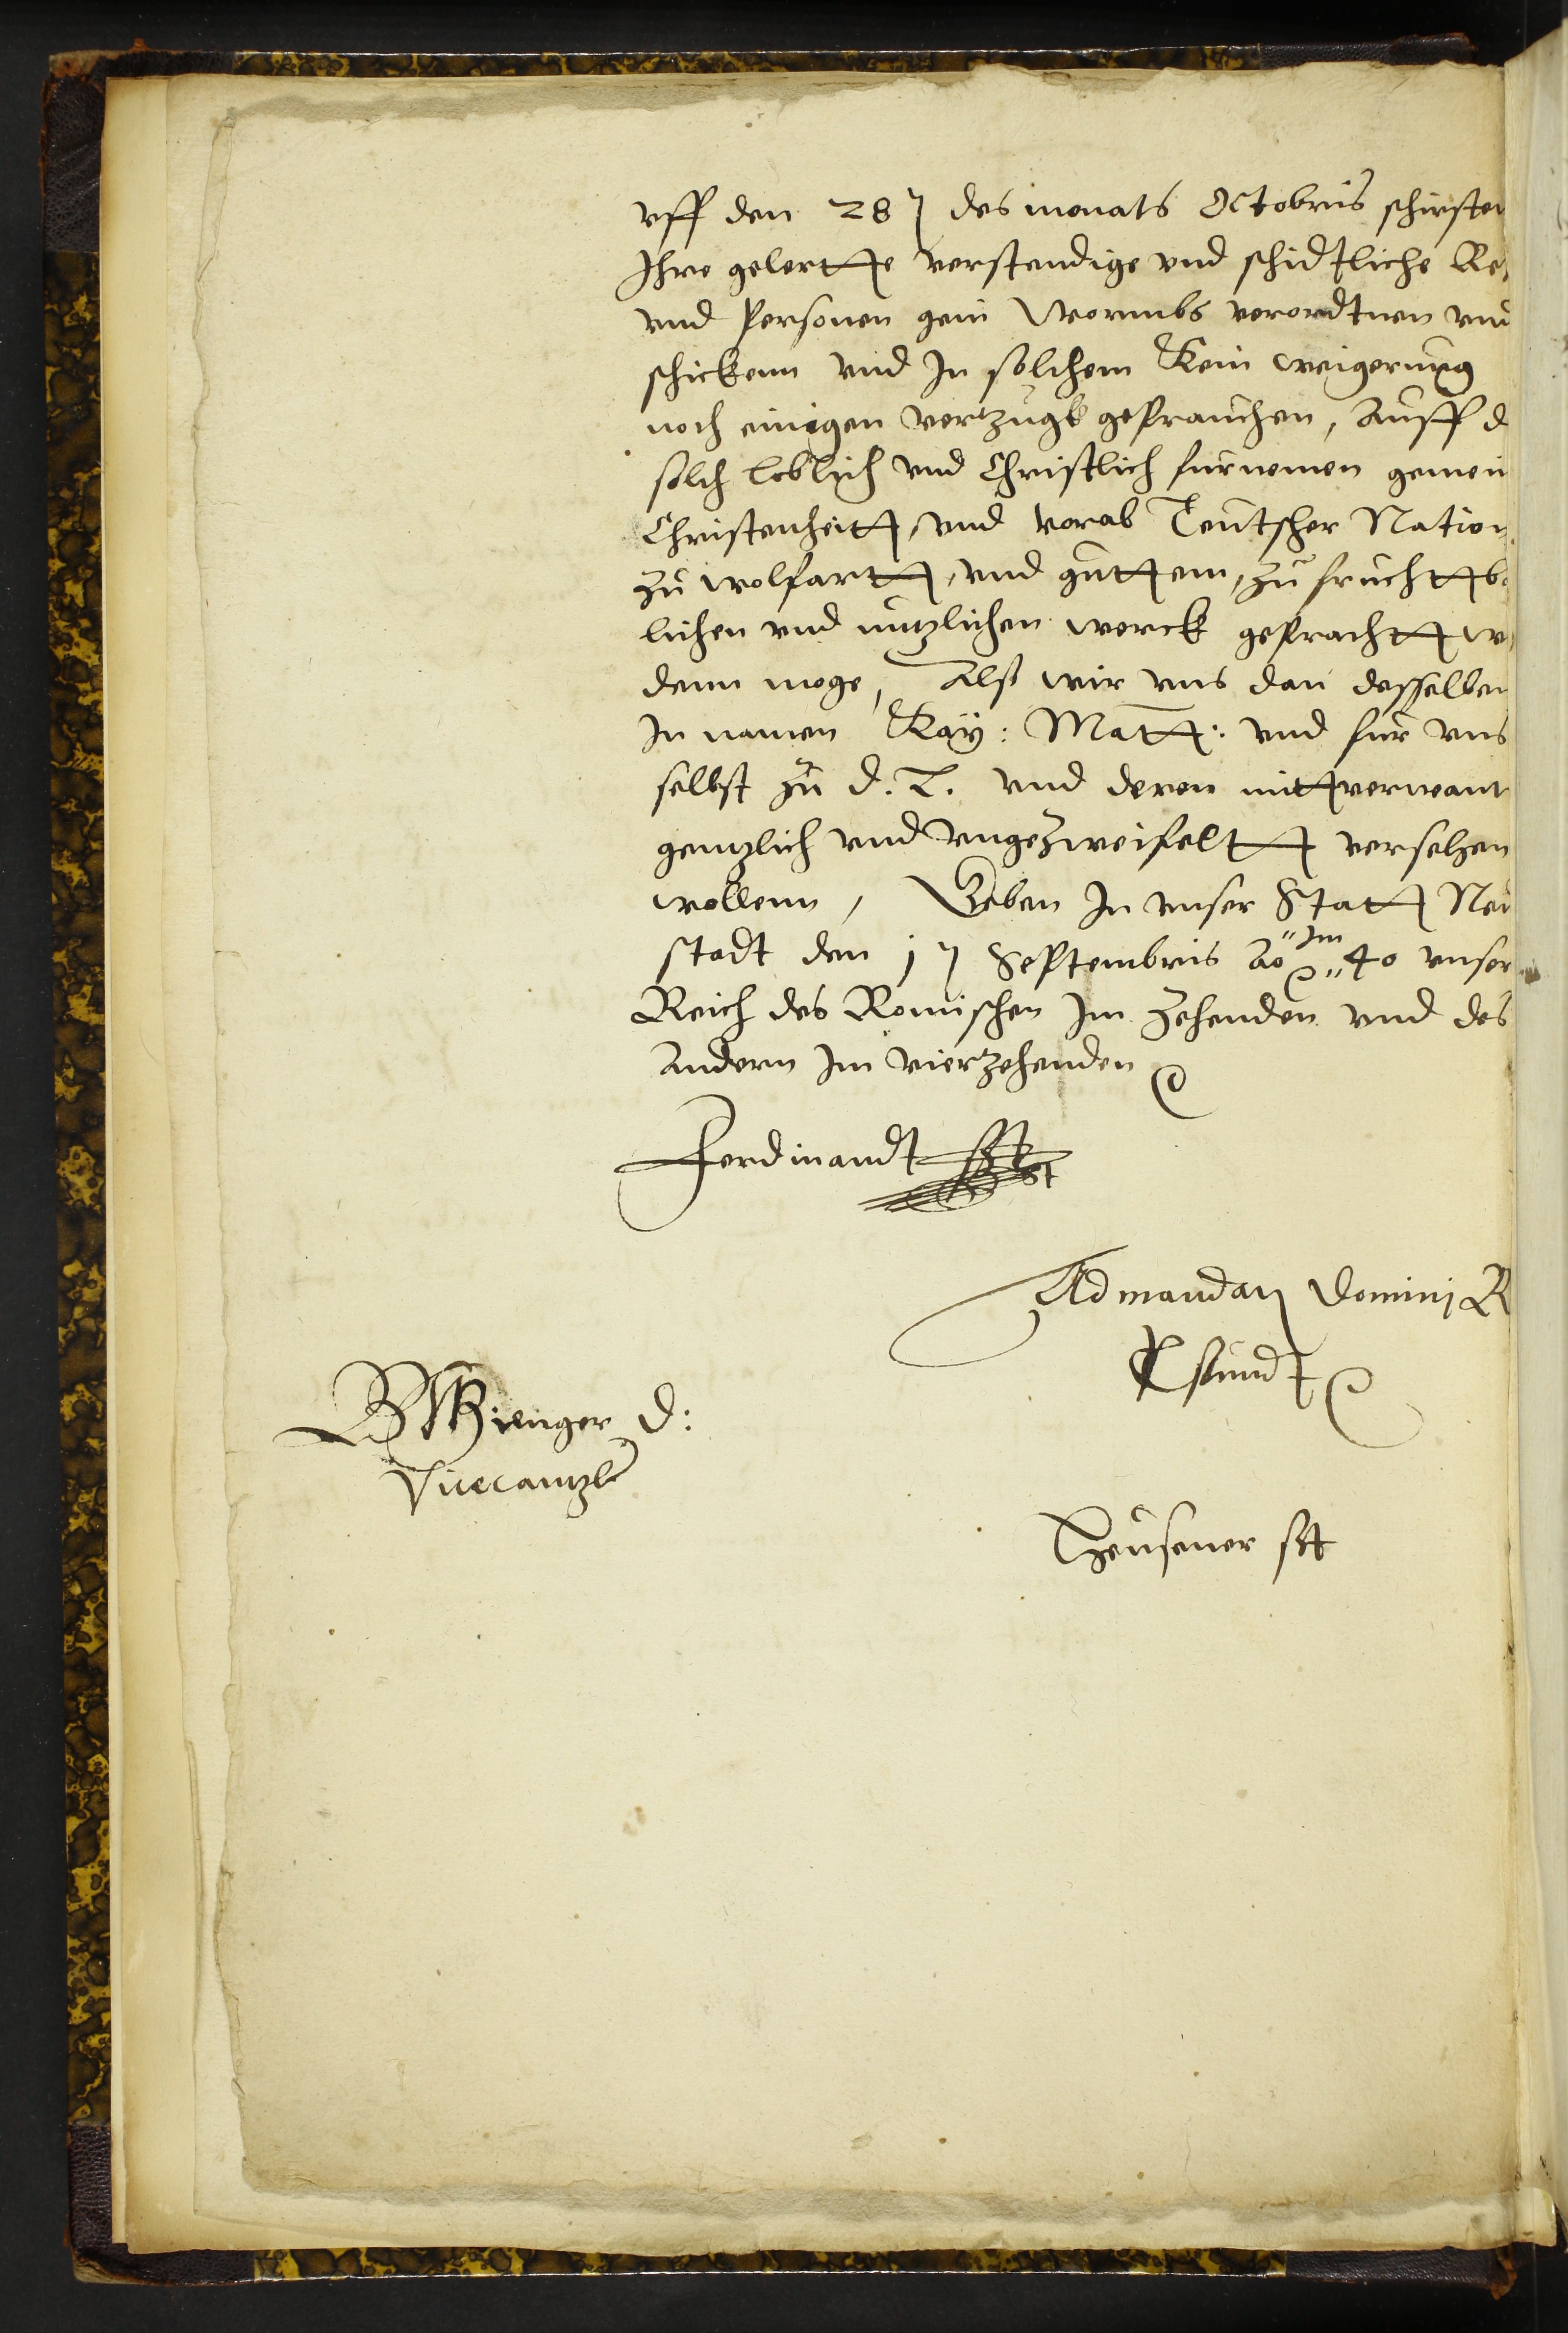 vff den 28 des monats Octobris schirsten
Ihre gelertte verstendige vnd schidtliche Re
vnd Personen gein Wormbs verordtnen vnd
schickenn vnd In solchem Kein weigerung
noch einigen vertzugk geprauchen, Auff d
solch loblich vnd Christlich furnemen gemein
Christenheitt, vnd vorab Teutscher Nation
zu wolfartt, vnd guttem, zu fruchttba
lichen vnd nutzlichen werck geprachtt w
denn moge, Alß wir vns dan desselben
In namen Kay: Matt: vnd fur vns
selbst zu d. L. vnd deren mittverwant
gentzlich vnd vngezweifeltt versehen
wollenn, Geben In vnser Statt Neu
stadt den j Septembris Ao im 40 vnser
Reich des Romischen Im Zehenden vnd des
Andern Im vierzehenden
Ferdinandt
Ad mandatj Dominj R
B Gienger D:
Vicecantzler